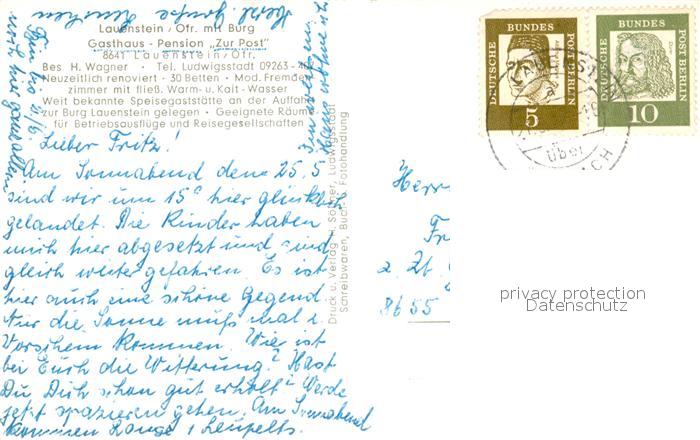 Herzl. Grüße
Lauenstein / Ofr. mit Burg
Gasthaus - Pension „Zur Post"
8641 Lauenstein/Ofr.
Bes. H. Wagner · Tel. Ludwigsstadt 09263-
Neuzeitlich renoviert · 30 Betten · Mod. Fremden
zimmer mit fließ. Warm- u. Kalt-Wasser
Weit bekannte Speisegaststätte an der Auffahrt
zur Burg Lauenstein gelegen · Geeignete Räume
für Betriebsausflüge und Reisegesellschaften
Lieber Fritz!
Am Sonnabend dem 25.5.
sind wir um 15° hier glücklich
gelandet. Die Kinder haben
mich hier abgesetzt und sind
gleich weiter gefahren. Es ist
hier auch eine schöne Gegend.
Nur die Sonne muß mal z.
Vorschein kommen. Wie ist
bei Euch die Witterung? Hast
Du Dich schon gut erholt? Werde
jetzt spazieren gehen. Am Sonnabend
kommen
noch hier
Druck u. Verlag
Schreibwaren, Buch- u. Fotohandlung
DEUTSCHE BUNDES POST BERLIN
5
DEUTSCHE BUNDES POST BERLIN
10
über
Herr
Fr
z. Zt.
8655
privacy protection
Datenschutz